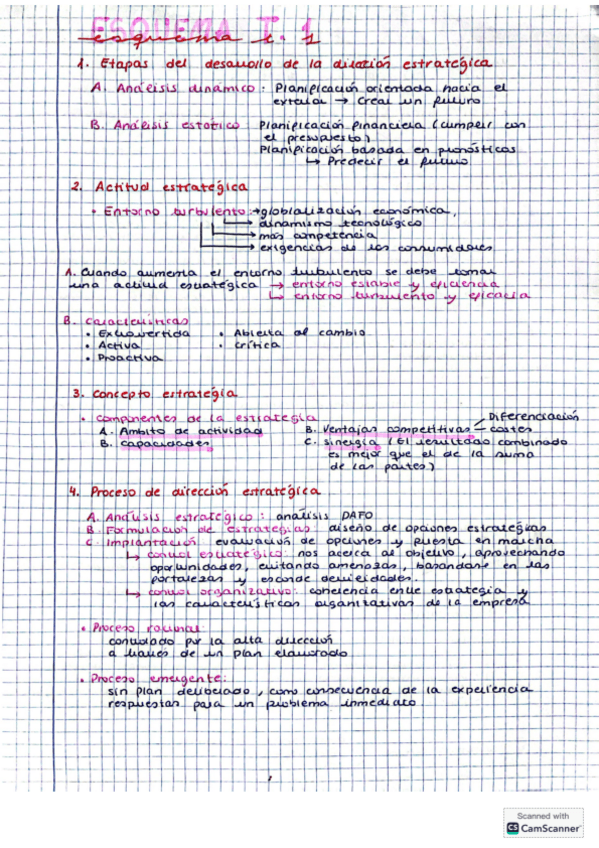 ESQUEMA T. 1
1. Etapas del desarrollo de la dirección estratégica
A. Análisis dinámico: Planificación orientada hacia el
exterior → Crear un futuro
B. Análisis estático: Planificación financiera (cumplir con
el presupuesto)
Planificación basada en pronósticos
↳ Predecir el futuro
2. Actitud estratégica
• Entorno turbulento: → globalización económica,
→ dinamismo tecnológico
→ más competencia
→ exigencias de los consumidores
A. Cuando aumenta el entorno turbulento se debe tomar
una actitud estratégica → entorno estable y eficiencia
↳ entorno turbulento y eficacia
B. Características
• Extrovertida • Abierta al cambio
• Activa • crítica
• Proactiva
3. Concepto estrategia
• Componentes de la estrategia Diferenciación
A. Ámbito de actividad B. Ventajas competitivas costes
B. Capacidades C. sinergia (El resultado combinado
es mejor que el de la suma
de las partes)
4. Proceso de dirección estratégica
A. Análisis estratégico: análisis DAFO
B. Formulación de estrategias: diseño de opciones estratégicas
C. Implantación: evaluación de opciones y puesta en marcha
↳ control estratégico: nos acerca al objetivo, aprovechando
oportunidades, evitando amenazas, basándose en las
fortalezas y esconde debilidades.
↳ control organizativo: coherencia entre estrategia y
las características organizativas de la empresa
• Proceso racional:
controlado por la alta dirección
a través de un plan elaborado
• Proceso emergente:
sin plan deliberado, como consecuencia de la experiencia
respuestas para un problema inmediato.
Scanned with
CS CamScanner